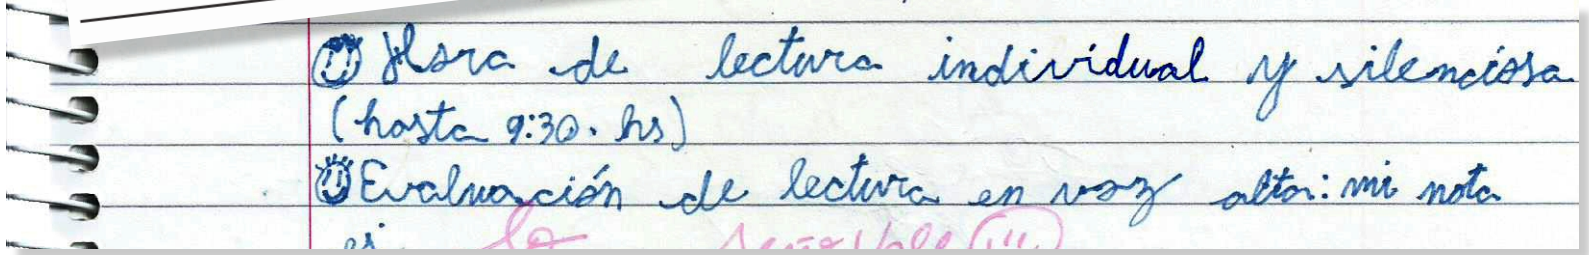 Hora de lectura individual y silenciosa
(hasta 9:30. hs)
Evaluación de lectura en voz alta: mi nota
es